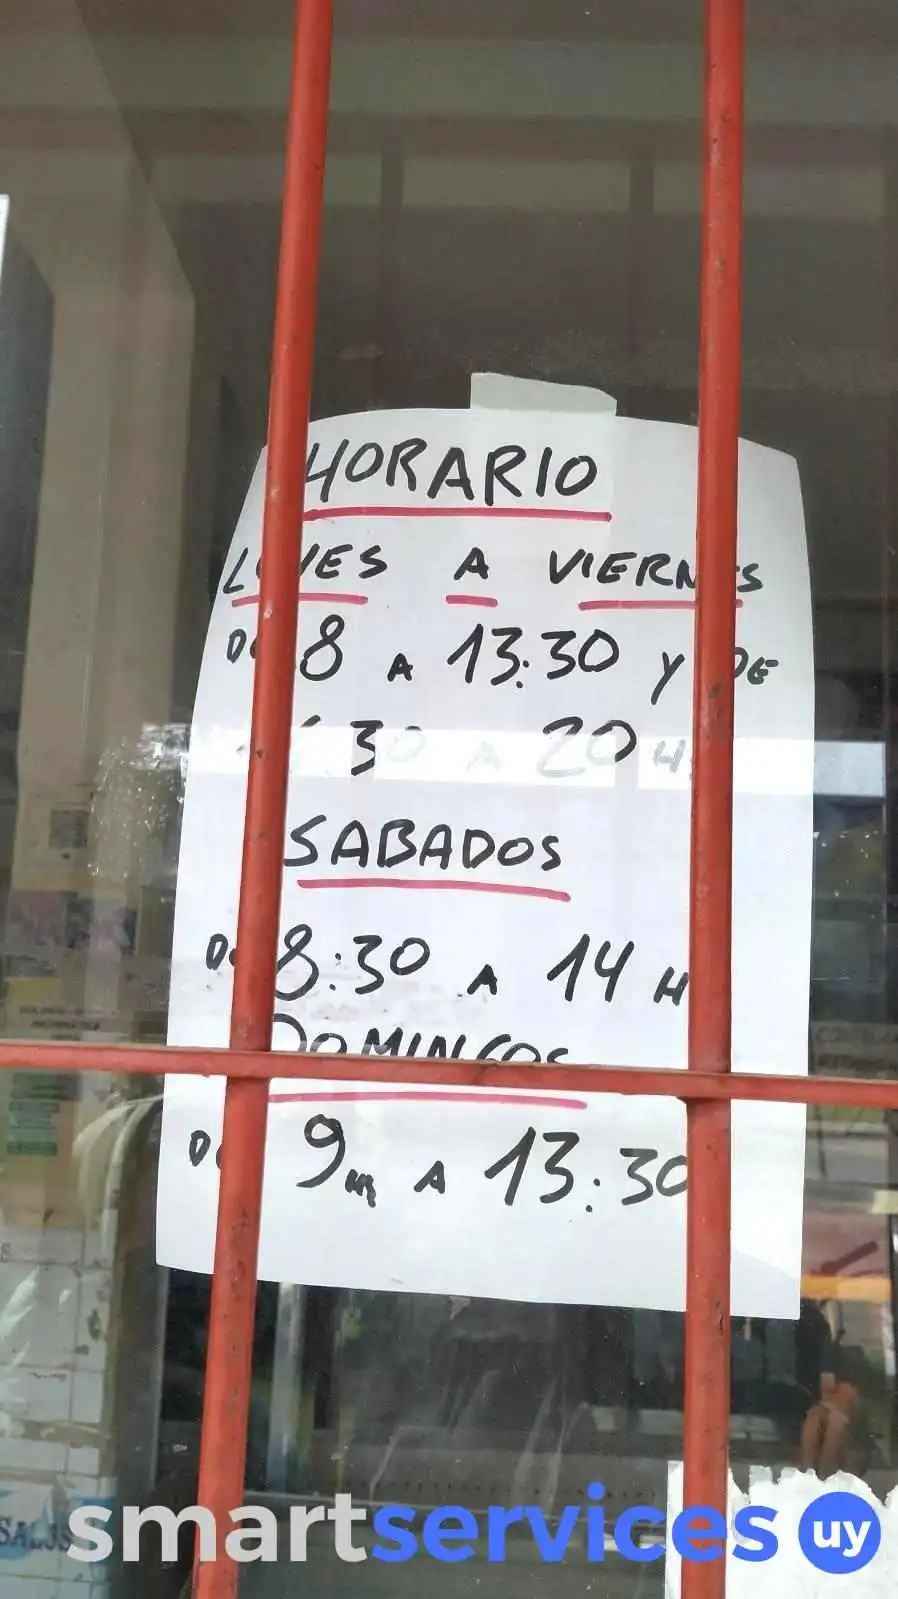 HORARIO
LUNES A VIERNES
DE 8 A 13:30 Y DE
30 A 20 H
SABADOS
DE 8:30 A 14 H
DOMINGOS
DE 9 A 13:30
SALUS
smartservices uy